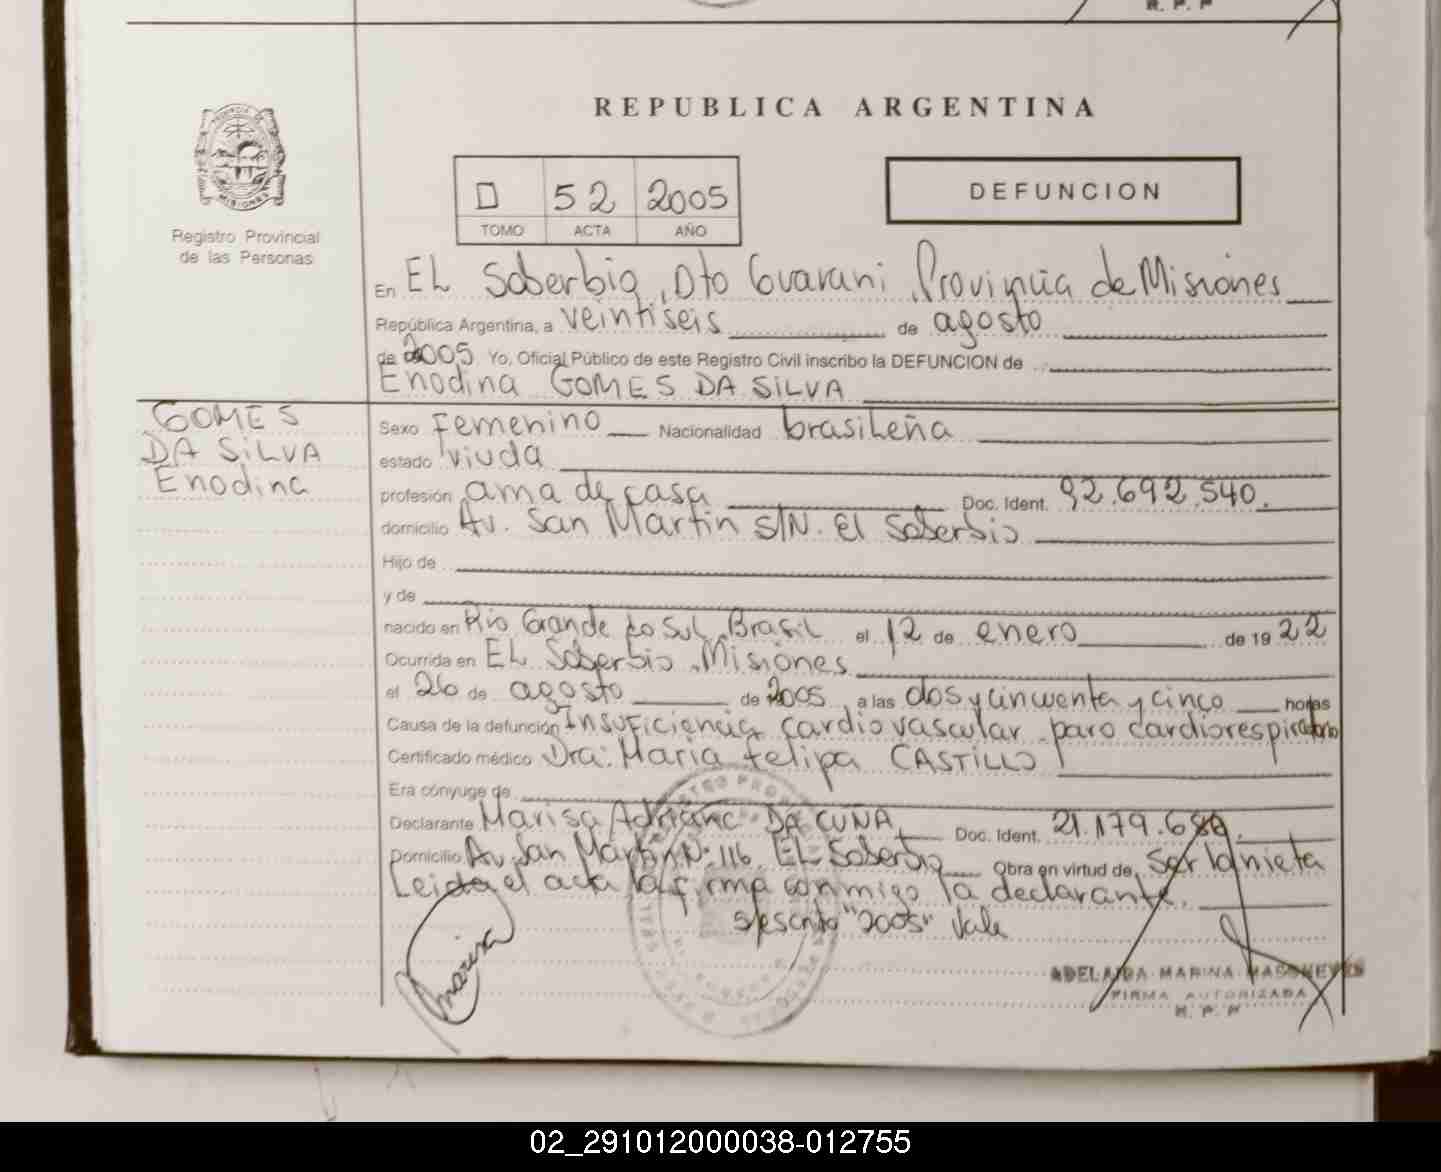 R. P. P
REPUBLICA ARGENTINA
PROVINCIA DE MISIONES
Registro Provincial
de las Personas
D 52 2005
TOMO ACTA AÑO
DEFUNCION
En EL Soberbio, Dto Guarani, Provincia de Misiones
República Argentina, a veintiseis de agosto
de 2005 Yo, Oficial Público de este Registro Civil inscribo la DEFUNCION de
Enodina GOMES DA SILVA
GOMES
DA SILVA
Enodina
Sexo Femenino Nacionalidad brasileña
estado viuda
profesión ama de casa Doc. Ident. 92.692.540.
domicilio Av. San Martin S/N. El Soberbio
Hijo de
y de
nacido en Rio Grande do Sul, Brasil el 12 de enero de 1922
Ocurrida en EL Soberbio, Misiones
el 26 de agosto de 2005 a las dos y cincuenta y cinco horas
Causa de la defunción Insuficiencia cardiovascular, paro cardiorespiratorio
Certificado médico Dra: Maria Felipa CASTILLO
Era cónyuge de
Declarante Marisa Adriana DA CUÑA Doc. Ident. 21.179.680.
Domicilio Av. San Martin N: 116 EL Soberbio Obra en virtud de, Ser la nieta
Leida el acta la firma conmigo la declarante.
S/escrito "2005" Vale
Marisa
ADELAIDA MARINA
FIRMA AUTORIZADA
R. P. P
02_291012000038-012755